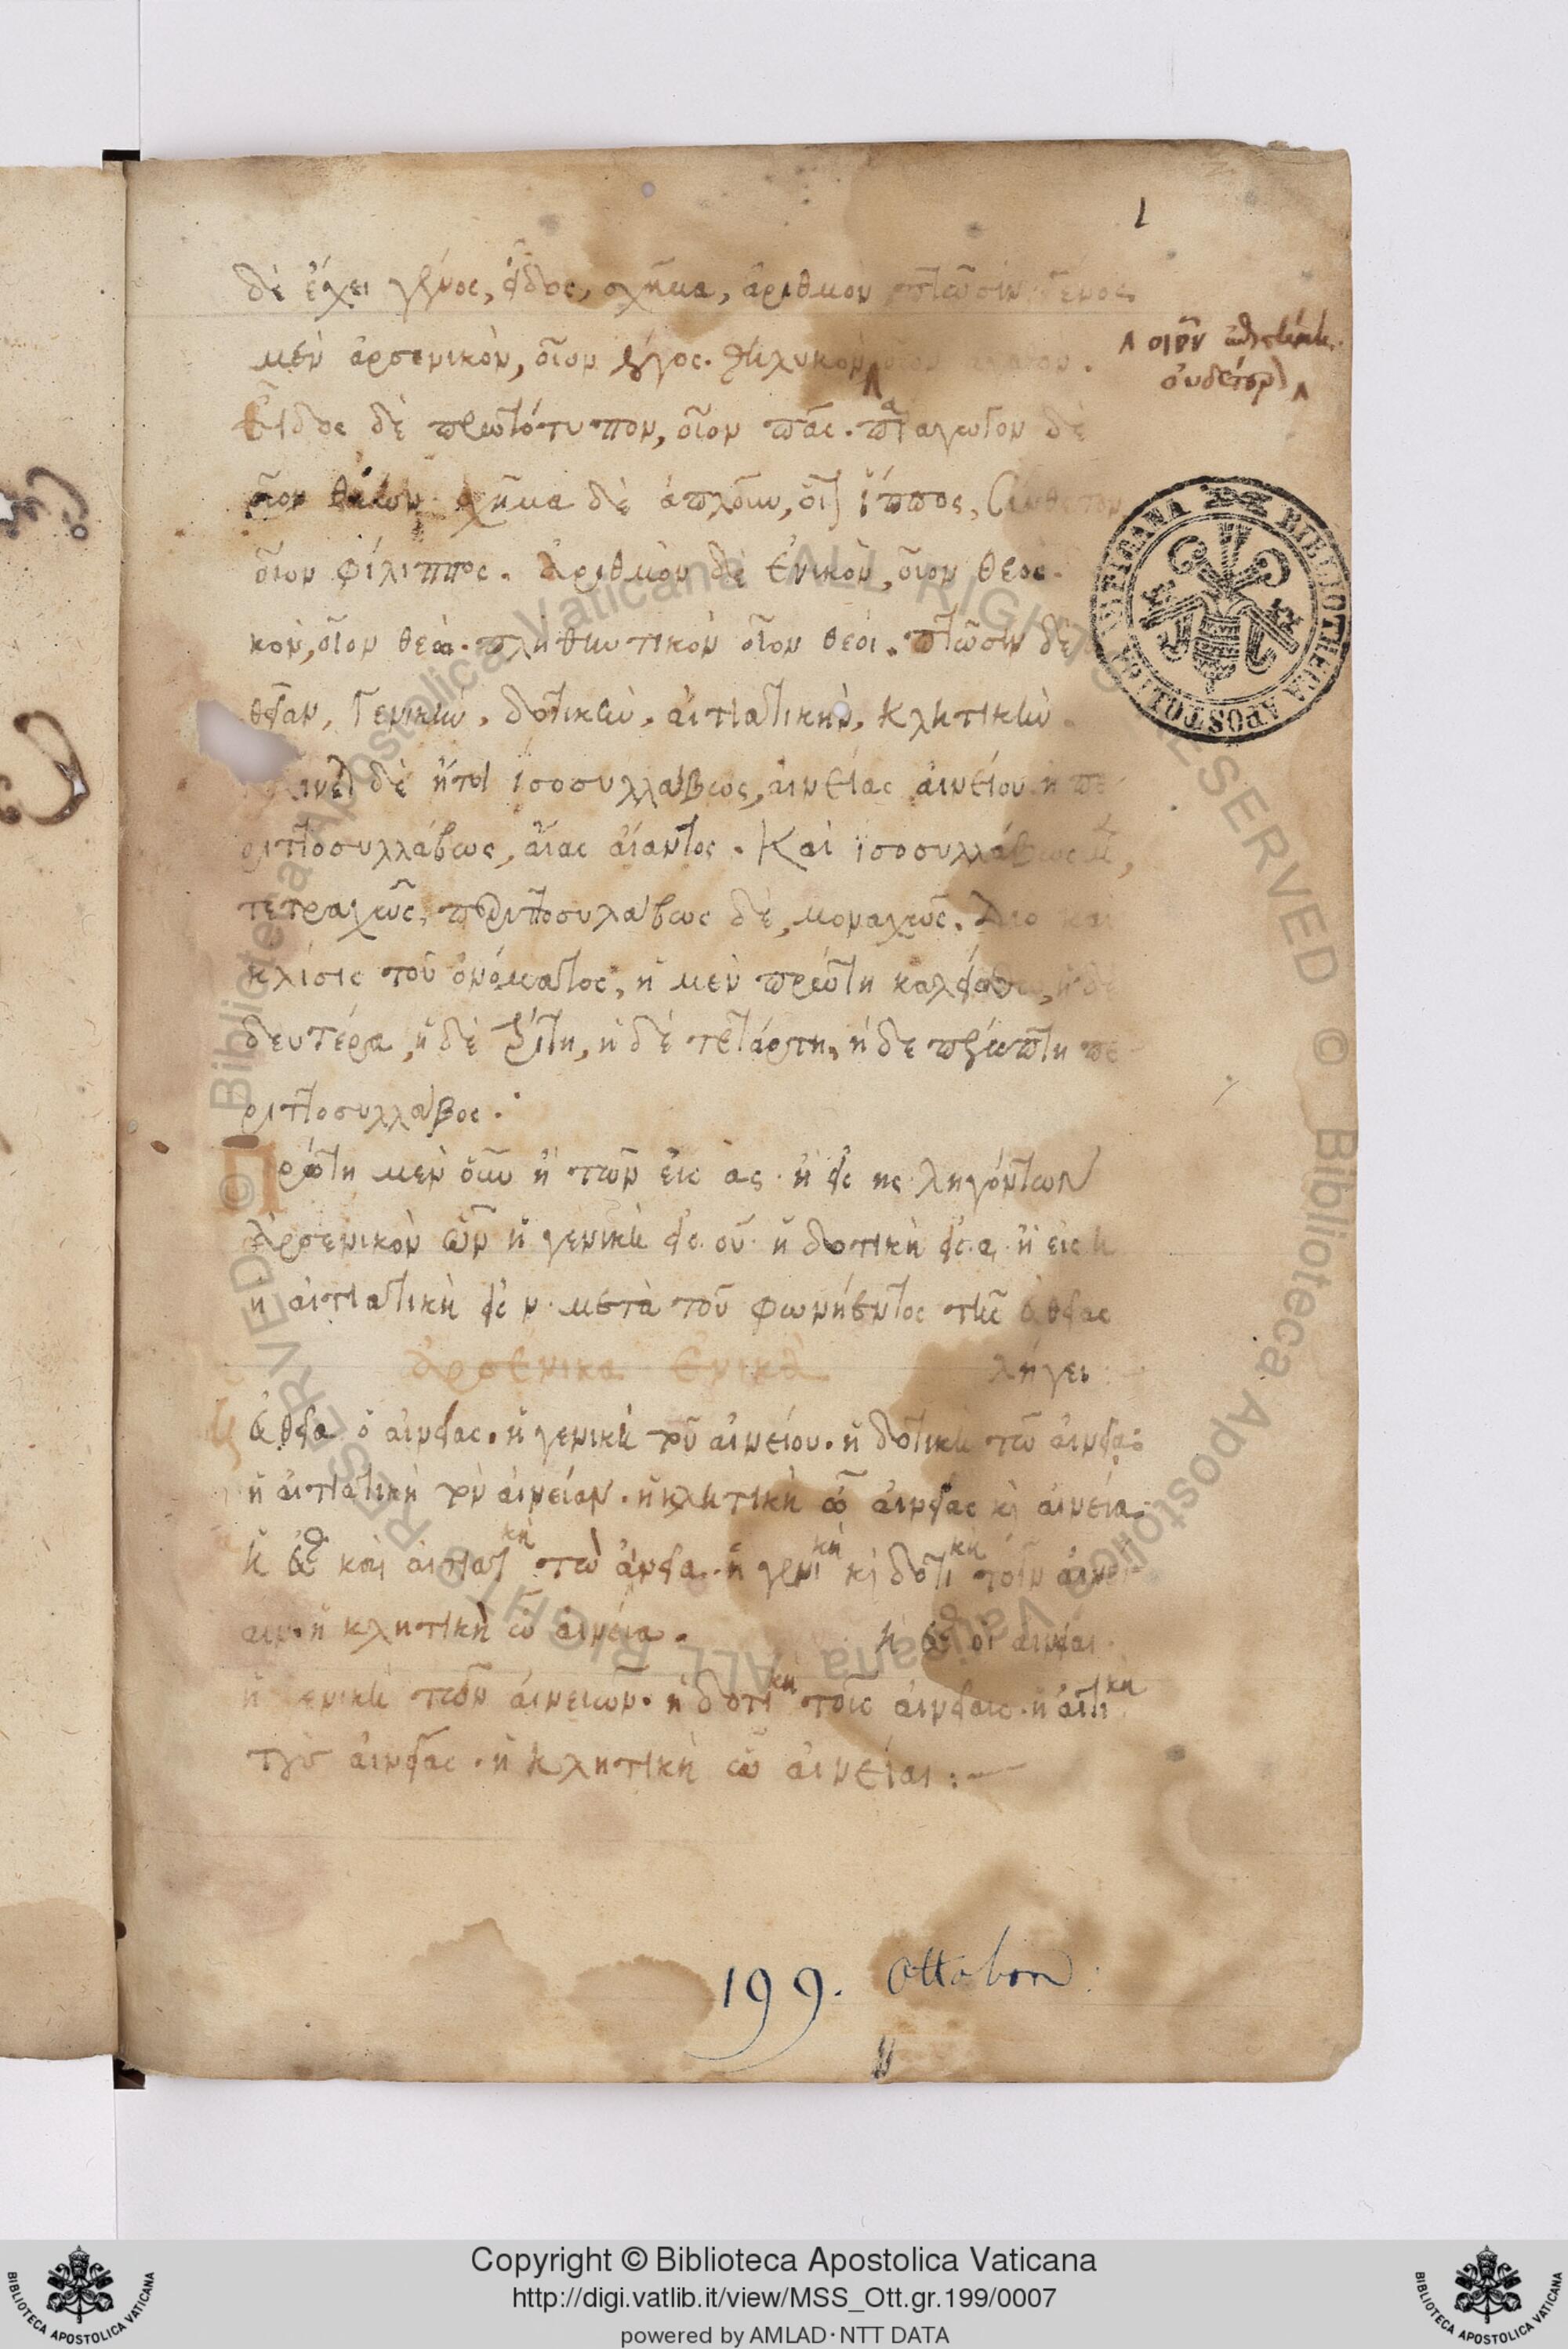 1
δὲ ἔχει γένος, εἶδος, σχῆμα, ἀριθμὸν πτῶσιν Γένος
μὲν ἀρσενικὸν, οἷον λόγος. θηλυκὸν
οἷον
οὐδέτερον
Εἶδος δὲ πρωτότυπον, οἷον πᾶς. παραγωγον δὲ
οἷον σχῆμα δὲ ἁπλοῦν, οἷον ἵππος, Σύνθετον
οἷον φίλιππος. Ἀριθμὸν δὲ ἑνικὸν, οἷον θεός.
κὸν, οἷον θεώ. πληθυντικὸν οἷον θεοί. πτῶσιν δὲ
θεῖαν, Γενικὴν, δοτικὴν, αἰτιατικὴν, κλητικὴν.
δὲ ἤτοι ἰσοσυλλάβως, αἰνείας αἰνείου ἢ πε
ριττοσυλλάβως, αἴας αἴαντος. Καὶ ἰσοσυλλάβως
τετραχῶς, περιττοσυλάβως δὲ, μοναχῶς. Διο και
κλίσις τοῦ ὀνόματος, ἡ μὲν πρώτη ἡ δὲ
δευτέρα, ἡ δὲ τρίτη, ἡ δὲ τετάρτη, ἡ δε πέμπτη πε
ριττοσυλλαβος.
Πρώτη μὲν οὖν ἡ τῶν εἰς ας ἢ εἰς ης ληγόντων
Ἀρσενικὸν ὧν ἡ γενικὴ εἰς ου ἡ δοτικὴ εἰς α ἢ εἰς η
ἡ αἰτιατικὴ εἰς ν μετὰ τοῦ φωνήεντος τῆς εὐθείας
Ἀρσενικα Ενικὰ λήγει
Εὐθεῖα ὁ αἰνείας. ἡ γενικὴ τοῦ αἰνείου. ἡ δοτικὴ τῶ αἰνεία
ἡ αἰτιατικὴ τὸν αἰνείαν. ἡ κλητικὴ ὦ αἰνείας καὶ αἰνεία
ἡ εὐθεῖα καὶ αἰτιατικὴ τὼ αἰνεία. ἡ γενικὴ καὶ δοτικὴ τοῖν αἰνεί
αιν. ἡ κλητικὴ ὦ αἰνεία. ἡ εὐθεῖα οἱ αἰνεῖαι
ἡ γενικὴ τῶν αἰνειῶν. ἡ δοτικὴ τοῖς αἰνείαις. ἡ αἰτιατικὴ
τοὺς αἰνείας. ἡ κλητικὴ ὦ αἰνείαι :—
199. Ottobon:
BIBLIOTHECA APOSTOLICA VATICANA
© Biblioteca Apostolica Vaticana ALL RIGHTS RESERVED
BIBLIOTECA APOSTOLICA VATICANA
Copyright © Biblioteca Apostolica Vaticana
http://digi.vatlib.it/view/MSS_Ott.gr.199/0007
powered by AMLAD·NTT DATA
BIBLIOTECA APOSTOLICA VATICANA